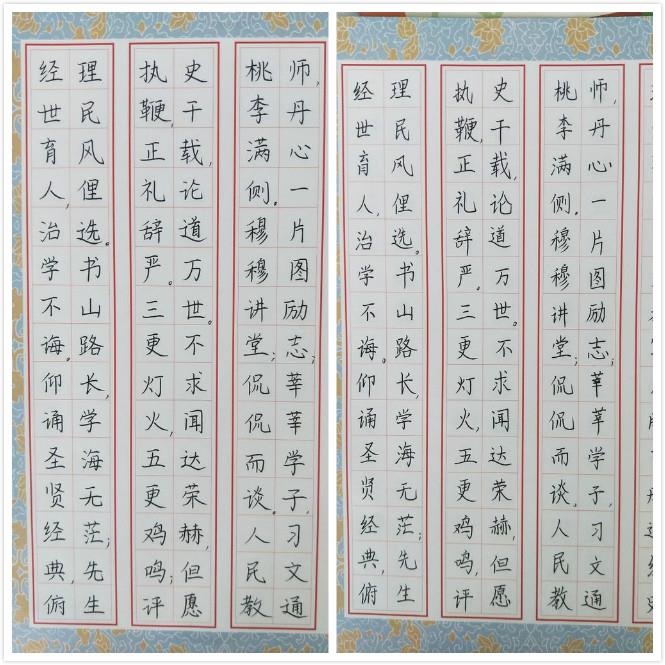 经世育人,治学不诲。仰诵圣贤经典,俯
理民风俚选。书山路长,学海无茫;先生
执鞭,正礼辞严。三更灯火,五更鸡鸣;评
史千载,论道万世。不求闻达荣赫,但愿
桃李满侧。穆穆讲堂;侃侃而谈。人民教
师,丹心一片图励志;莘莘学子,习文通
经世育人,治学不诲。仰诵圣贤经典,俯
理民风俚选。书山路长,学海无茫;先生
执鞭,正礼辞严。三更灯火,五更鸡鸣,评
史千载,论道万世。不求闻达荣赫,但愿
桃李满侧。穆穆讲堂;侃侃而谈。人民教
师,丹心一片图励志;莘莘学子,习文通